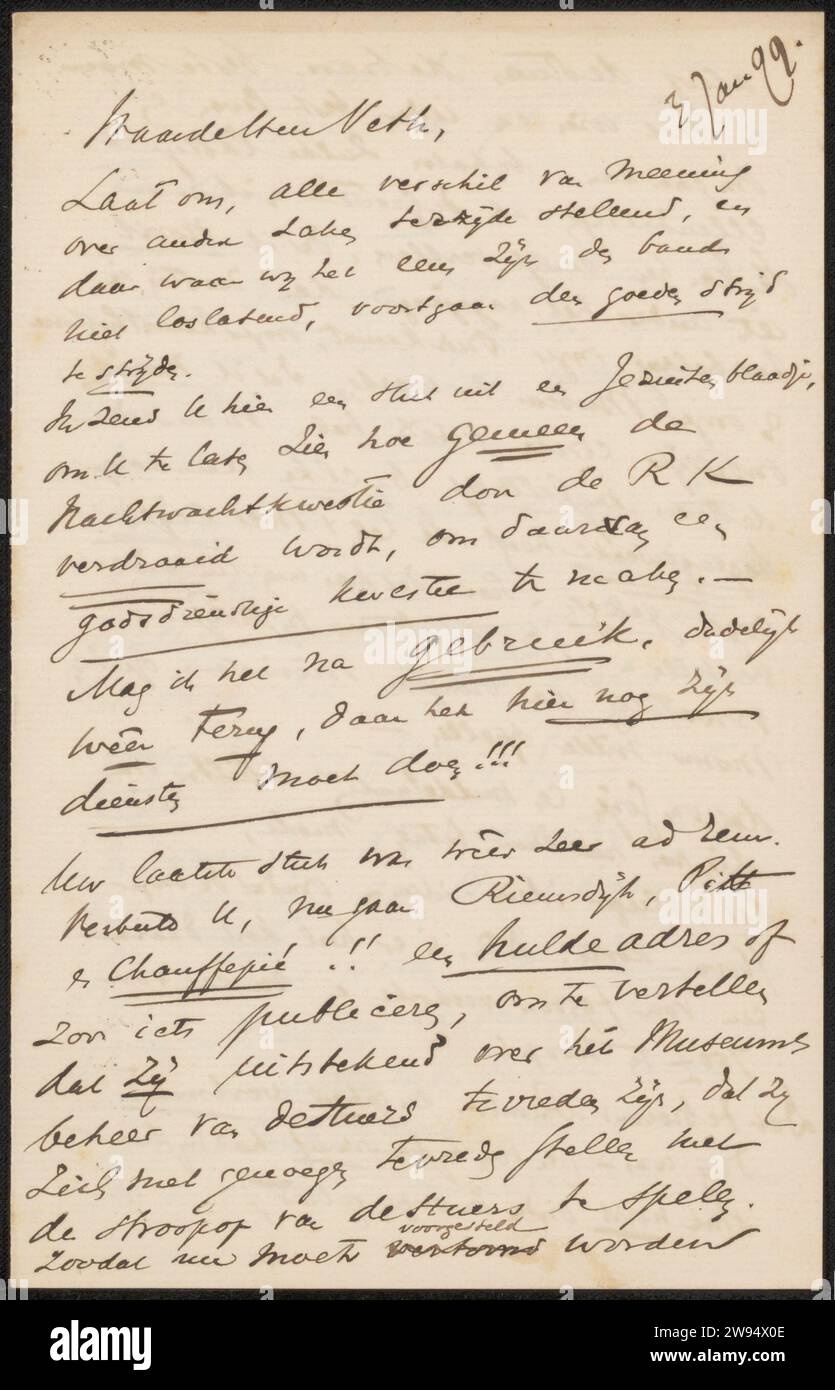 3 Jan 99.
Waarde Heer Veth,
Laat ons, alle verschil van meening
over andere zaken terzijde stellend, en
daar waar wij het eens zijn den band
niet loslatend, voortgaan den goeden strijd
te strijden.
Ik zend U hier een stuk uit een Jezuiten blaadje,
om U te laten zien hoe gemeen de
Nachtwachtkwestie door de R K
verdraaid wordt, om daarvan een
godsdienstige kwestie te maken. —
Mag ik het na gebruik, dadelijk
weêr terug, daar het hier nog zijn
diensten moet doen!!!
Uw laatste stuk was weêr zeer ad rem.
Verbeeld U, nu gaan Riemsdijk, Pitt
en Chauffepié .!! een hulde adres of
zoo iets publiceren, om te vertellen
dat zij uitstekend over het Museums
beheer van de Stuers tevreden zijn, dat zij
zich met genoegen tevreden stellen met
de strooppop van de Stuers te spelen.
voorgesteld
Zoodat nu moet vertoond worden
alamy
Image ID: 2W94X0E
www.alamy.com